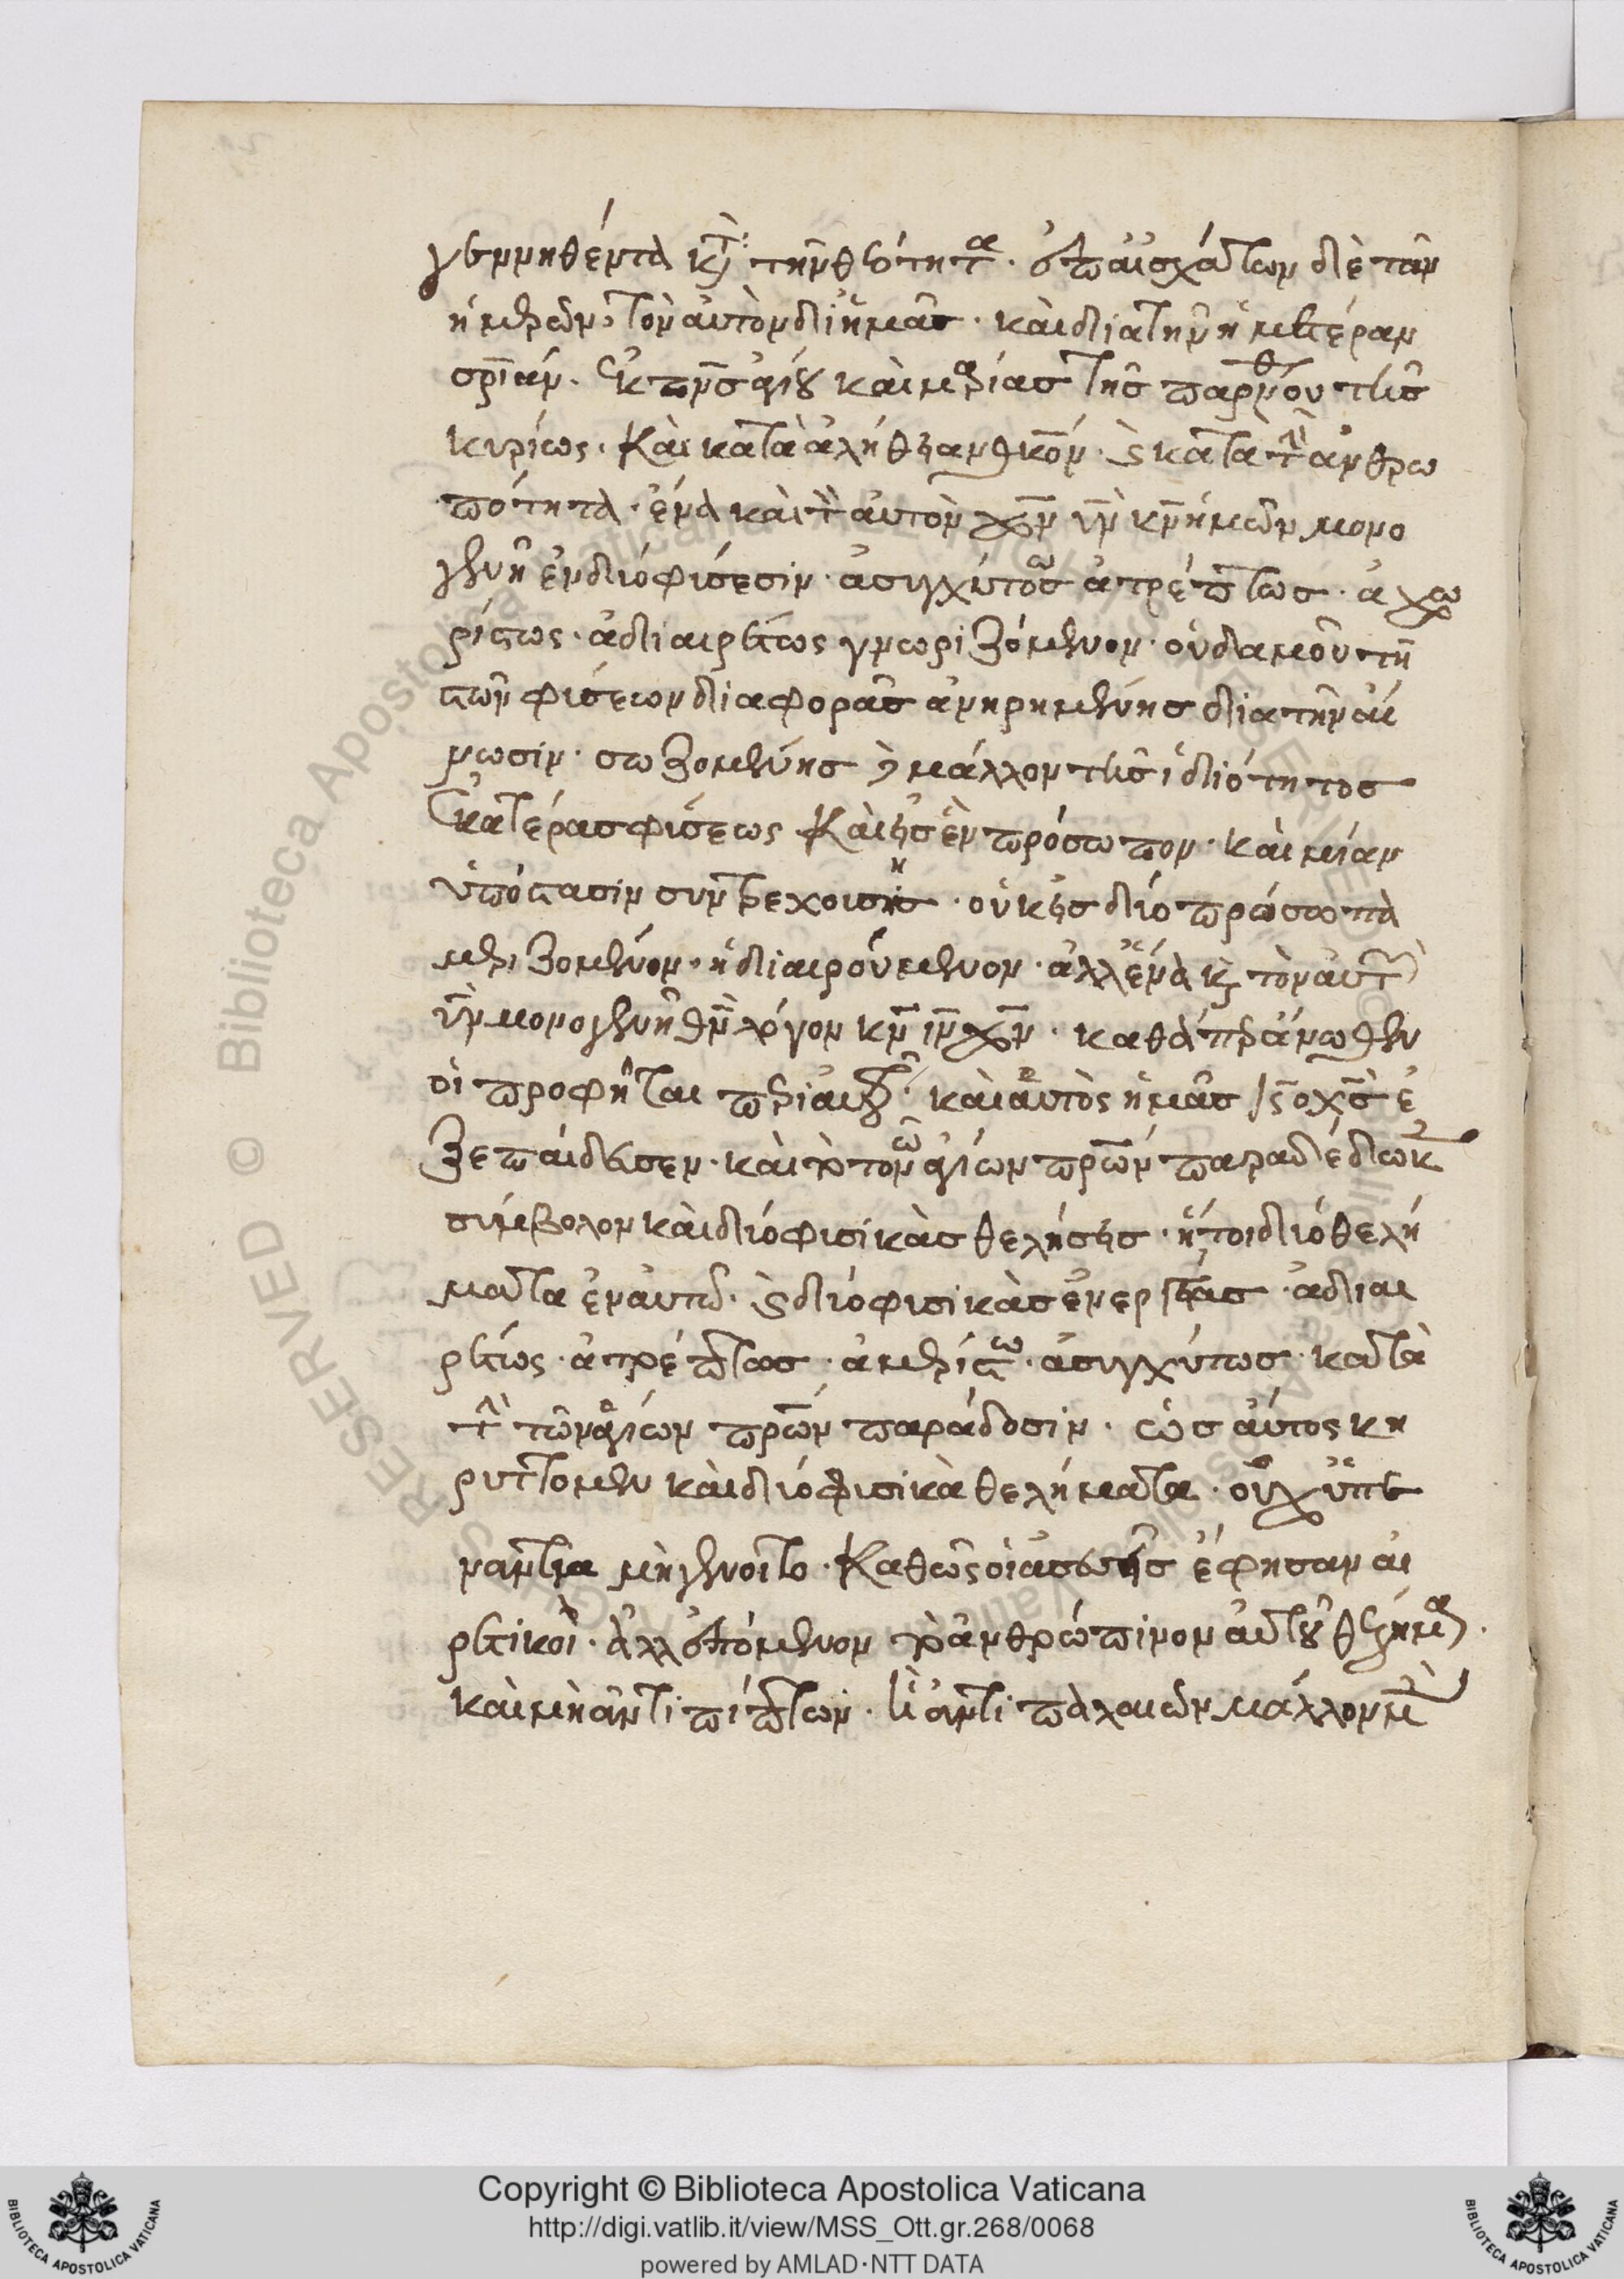 γεννηθέντα κατὰ τὴν θεότητα· ἐπ ἀισχάτων δὲ τῶν
ἡμερῶν, τὸν ἀυτὸν δι ἡμᾶς· καὶ δια τὴν ἡμετέραν
σρίαν· ἐκ πνς ἁγίου καὶ μαρίας τῆς παρθένου τῆς
κυρίως· καὶ κατὰ ἀλήθειαν θκον· ϛ κατὰ τὴν ἀνθρω
πότητα· ἕνα καὶ τὸν ἀυτὸν χν υν κν ἡμῶν μονο
γενῆ ἐν δϊό φύσεσιν· ἀσυγχύτως ἀτρέπτως· ἀχω
ρίστως· ἀδιαιρέτως γνωριζόμενον· οὐδαμοῦ τῆ
τῶν φύσεων διαφορᾶς ἀνηρημένης δια τὴν αἕ
νωσιν· σωζομένης δὲ μάλλον τῆς ἰδιότητος
ἑκατέρας φύσεως καὶ εἰς ἓν πρόσωπον· καὶ μίαν
ὑπόστασιν συντρεχούσης· οὐκ εἰς δϊό πρόσωπα
μεριζομένον· ἢ διαιρούμενον· ἀλλ ἕνα κ τὸν ἀυτὸν
υν μονογενῆ θν λόγον κν ιν χν· καθάπερ ἄνωθεν
οἱ προφῆται περὶ αυτοῦ· καὶ ἀυτὸς ἡμᾶς ις ο χς ἐ
ξεπαίδευσεν· καὶ το τῶν ἁγίων πρων παραδέδωκε
σύμβολον καὶ δϊό φισικὰς θελήσεις· ἤτοι δϊό θελή
ματα ἐν ἀυτῶ· ϛ δϊό φισικὰς ἐνεργείας· ἀδιαι
ρέτως· ἀτρέπτως· ἀμερίστως· ἀσυγχύτως· κατὰ
τὴν τῶν ἁγίων πρων παράδοσιν· ὡσ αύτος κη
ρυττομεν καὶ δϊό φισικὰ θελήματα· οὐχ ὑπε
ναντία μὴ γένοιτο· καθὼς οἱ ἀσεβεῖς ἔφησαν αι
ρετικοὶ· ἀλλ ἑπόμενον το ἀνθρώπινον ἀυτοῦ θέλημα·
καὶ μὴ ἀντιπίπτων· ἢ ἀντιπαλαιῶν μάλλον μὲν